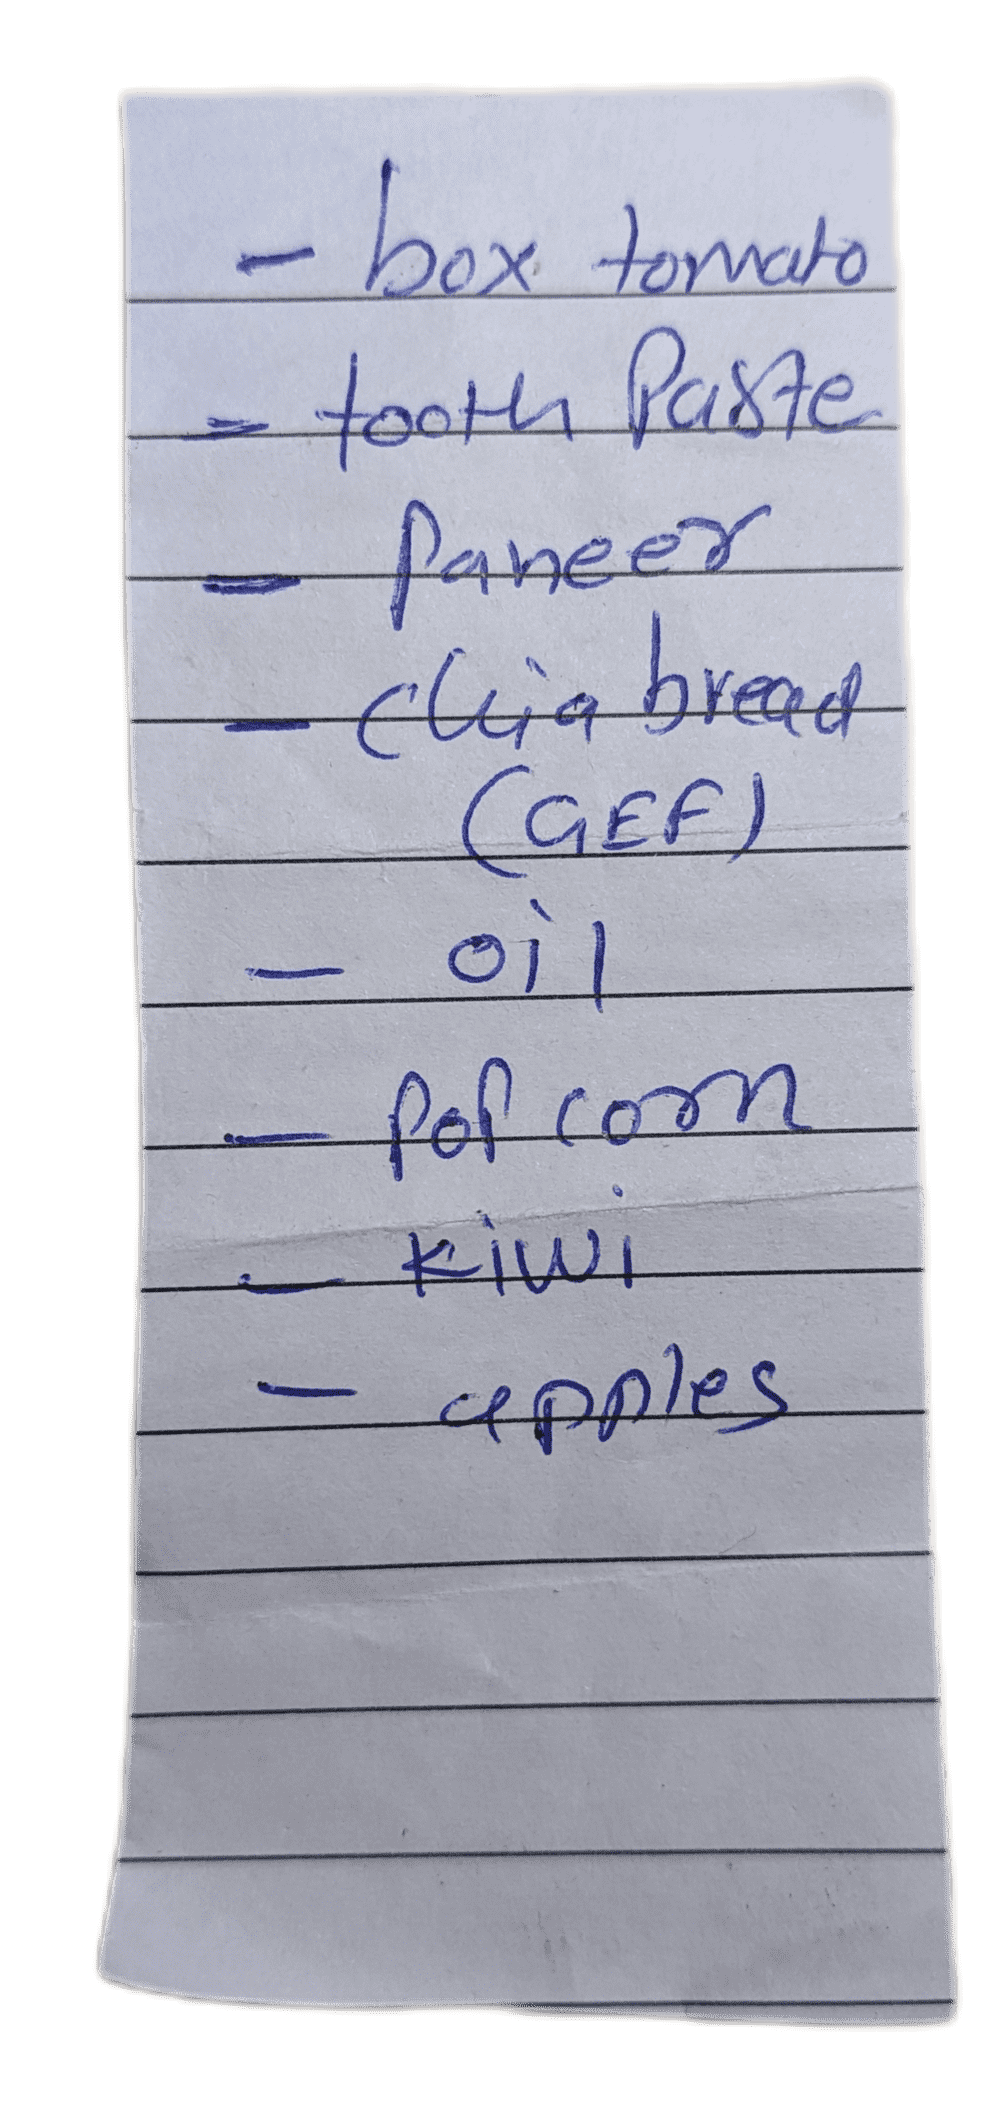 - box tomato
- tooth Paste
- Paneer
- chia bread
(GEF)
- oil
- Pop corn
- kiwi
- apples